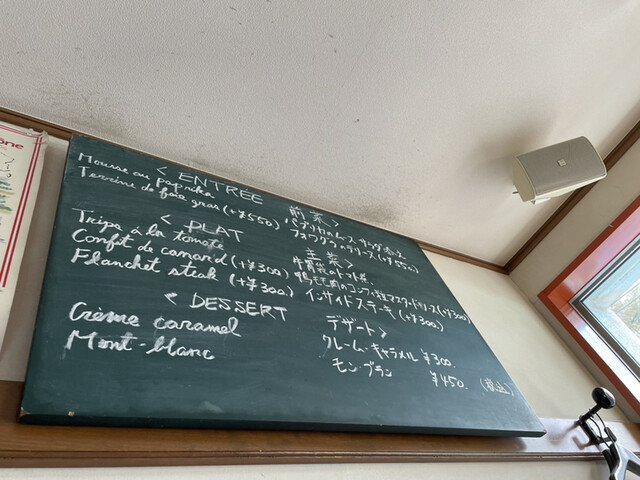 < ENTRÉE 前菜 >
Mousse au paprika パプリカのムース
Terrine de foie gras (+¥550) フォワグラのテリーヌ (+¥550)
< PLAT 主菜 >
Tripe à la tomate 牛胃袋のトマト煮
Confit de canard (+¥300) 鴨もも肉のコンフィ 粒マスタードソース (+¥300)
Flanchet steak (+¥300) インサイドステーキ (+¥300)
< DESSERT デザート >
Crème caramel クレーム・キャラメル ¥300.
Mont-blanc モン・ブラン ¥450. (税込)